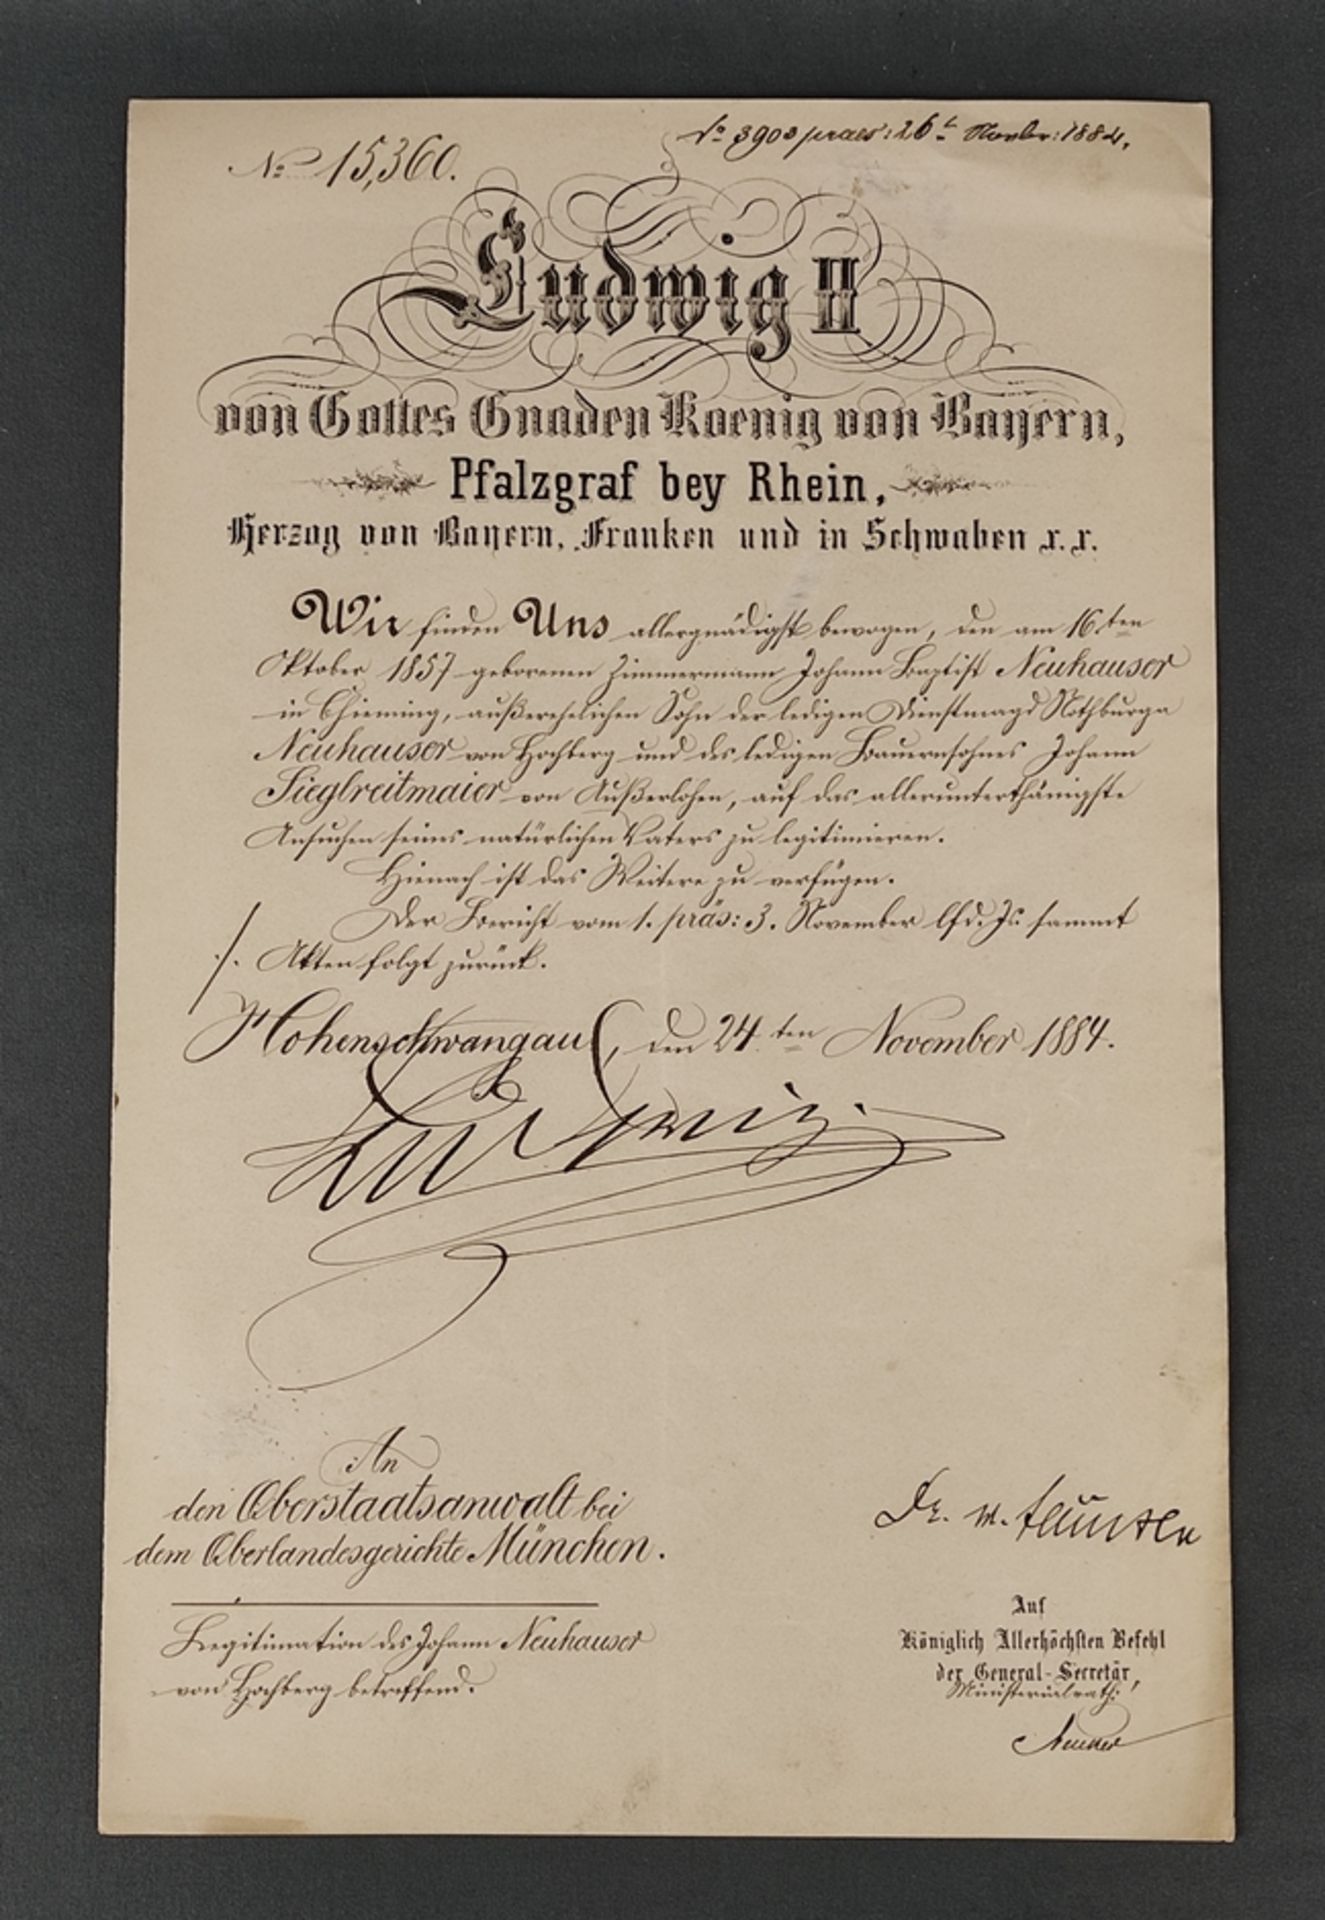 No 15,360.
No 3903 praes: 26t Novbr: 1884.
Ludwig II
von Gottes Gnaden Koenig von Bayern,
Pfalzgraf bey Rhein,
Herzog von Bayern, Franken und in Schwaben x. x.
Wir finden Uns allergnädigst bewogen, den am 16ten
Oktober 1857 geborenen Zimmermann Johann Baptist Neuhauser
in Chieming, außerehelichen Sohn der ledigen Dienstmagd Nothburga
Neuhauser von Hochberg und des ledigen Bauernsohnes Johann
Sieglreitmaier von Außerlohen, auf das allerunterthänigste
Ansuchen seines natürlichen Vaters zu legitimieren.
Hienach ist das Weitere zu verfügen.
Der Bericht vom 1. präs: 3. November lfd. Js. sammt
./. Akten folgt zurück.
Hohenschwangau, den 24.ten November 1884.
Ludwig.
An
den Oberstaatsanwalt bei
dem Oberlandesgerichte München.
Dr. v. Fäustle
Legitimation des Johann Neuhauser
von Hochberg betreffend.
Auf
Königlich Allerhöchsten Befehl
der General-Secretär,
Ministerialrath: